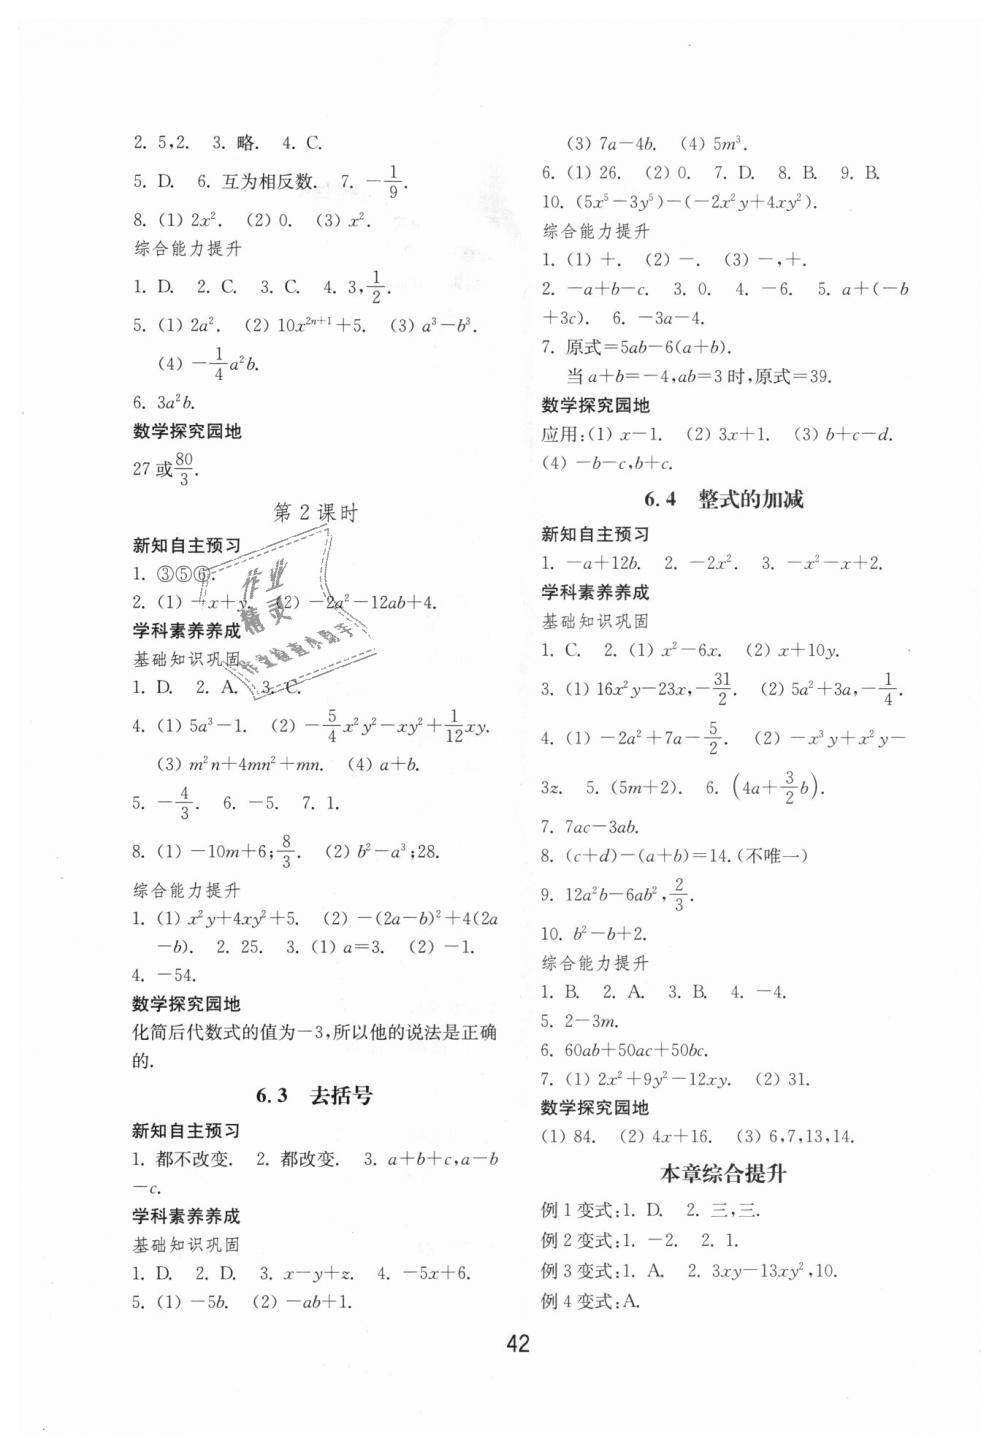 2. 5,2.  3. 略.  4. C.
5. D.  6. 互为相反数.  7. −1/9.
8. (1) 2x².  (2) 0.  (3) x².
综合能力提升
1. D.  2. C.  3. C.  4. 3,1/2.
5. (1) 2a².  (2) 10x²ⁿ⁺¹+5.  (3) a³−b³.
(4) −1/4a²b.
6. 3a²b.
数学探究园地
27 或80/3.
第 2 课时
新知自主预习
1. ③⑤⑥.
2. (1) −x+y.  (2) −2a²−12ab+4.
学科素养养成
基础知识巩固
1. D.  2. A.  3. C.
4. (1) 5a³−1.  (2) −5/4x²y²−xy²+1/12xy.
(3) m²n+4mn²+mn.  (4) a+b.
5. −4/3.  6. −5.  7. 1.
8. (1) −10m+6;8/3.  (2) b²−a³;28.
综合能力提升
1. (1) x²y+4xy²+5.  (2) −(2a−b)²+4(2a
−b).  2. 25.  3. (1) a=3.  (2) −1.
4. −54.
数学探究园地
化简后代数式的值为−3,所以他的说法是正确
的.
6.3 去括号
新知自主预习
1. 都不改变.  2. 都改变.  3. a+b+c,a−b
−c.
学科素养养成
基础知识巩固
1. D.  2. D.  3. x−y+z.  4. −5x+6.
5. (1) −5b.  (2) −ab+1.
(3) 7a−4b.  (4) 5m³.
6. (1) 26.  (2) 0.  7. D.  8. B.  9. B.
10. (5x⁵−3y⁵)−(−2x²y+4xy²).
综合能力提升
1. (1) +.  (2) −.  (3) −,+.
2. −a+b−c.  3. 0.  4. −6.  5. a+(−b
+3c).  6. −3a−4.
7. 原式=5ab−6(a+b).
当 a+b=−4,ab=3 时,原式=39.
数学探究园地
应用:(1) x−1.  (2) 3x+1.  (3) b+c−d.
(4) −b−c,b+c.
6.4 整式的加减
新知自主预习
1. −a+12b.  2. −2x².  3. −x²−x+2.
学科素养养成
基础知识巩固
1. C.  2. (1) x²−6x.  (2) x+10y.
3. (1) 16x²y−23x,−31/2.  (2) 5a²+3a,−1/4.
4. (1) −2a²+7a−5/2.  (2) −x³y+x²y−
3z.  5. (5m+2).  6. (4a+3/2b).
7. 7ac−3ab.
8. (c+d)−(a+b)=14.(不唯一)
9. 12a²b−6ab²,2/3.
10. b²−b+2.
综合能力提升
1. B.  2. A.  3. B.  4. −4.
5. 2−3m.
6. 60ab+50ac+50bc.
7. (1) 2x²+9y²−12xy.  (2) 31.
数学探究园地
(1) 84.  (2) 4x+16.  (3) 6,7,13,14.
本章综合提升
例 1 变式:1. D.  2. 三,三.
例 2 变式:1. −2.  2. 1.
例 3 变式:1. A.  2. 3xy−13xy²,10.
例 4 变式:A.
42
作业
精灵
作业检查小助手